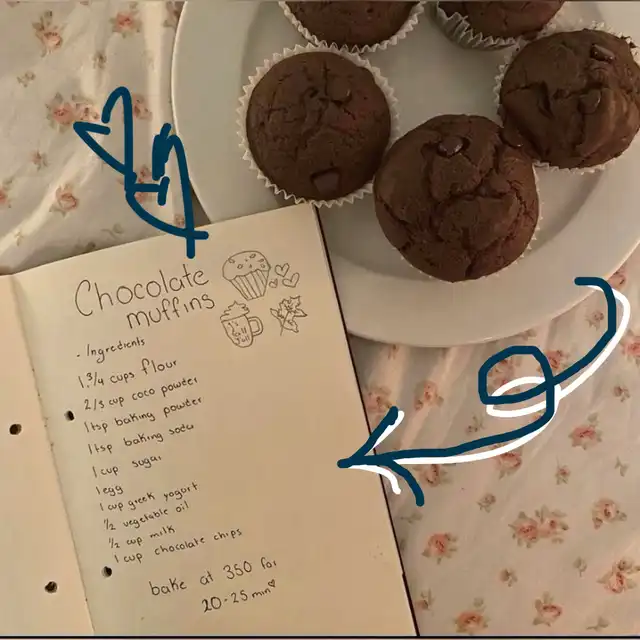 Chocolate
muffins
- Ingredients
1 3/4 cups flour
2/3 cup coco powder
1 tsp baking powder
1 tsp baking soda
1 cup sugar
1 egg
1 cup greek yogurt
1/2 vegetable oil
1/2 cup milk
1 cup chocolate chips
bake at 350 for
20-25 min
It's
fall
y'all